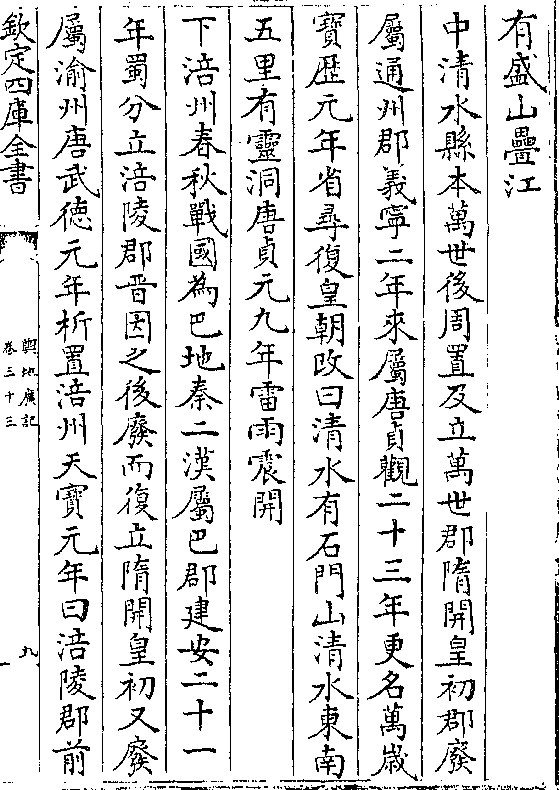 有盛山疊江
中清水縣本萬世後周置及立萬世郡隋開皇初郡廢
屬通州郡義寧二年來屬唐貞觀二十三年更名萬歲
寶歷元年省尋復皇朝改曰清水有石門山清水東南
五里有靈洞唐貞元九年雷雨震開
下涪州春秋戰國為巴地秦二漢屬巴郡建安二十一
年蜀分立涪陵郡晉因之後廢而復立隋開皇初又廢
屬渝州唐武德元年析置涪州天寶元年曰涪陵郡前
欽定四庫全書
輿地廣記
卷三十三
九